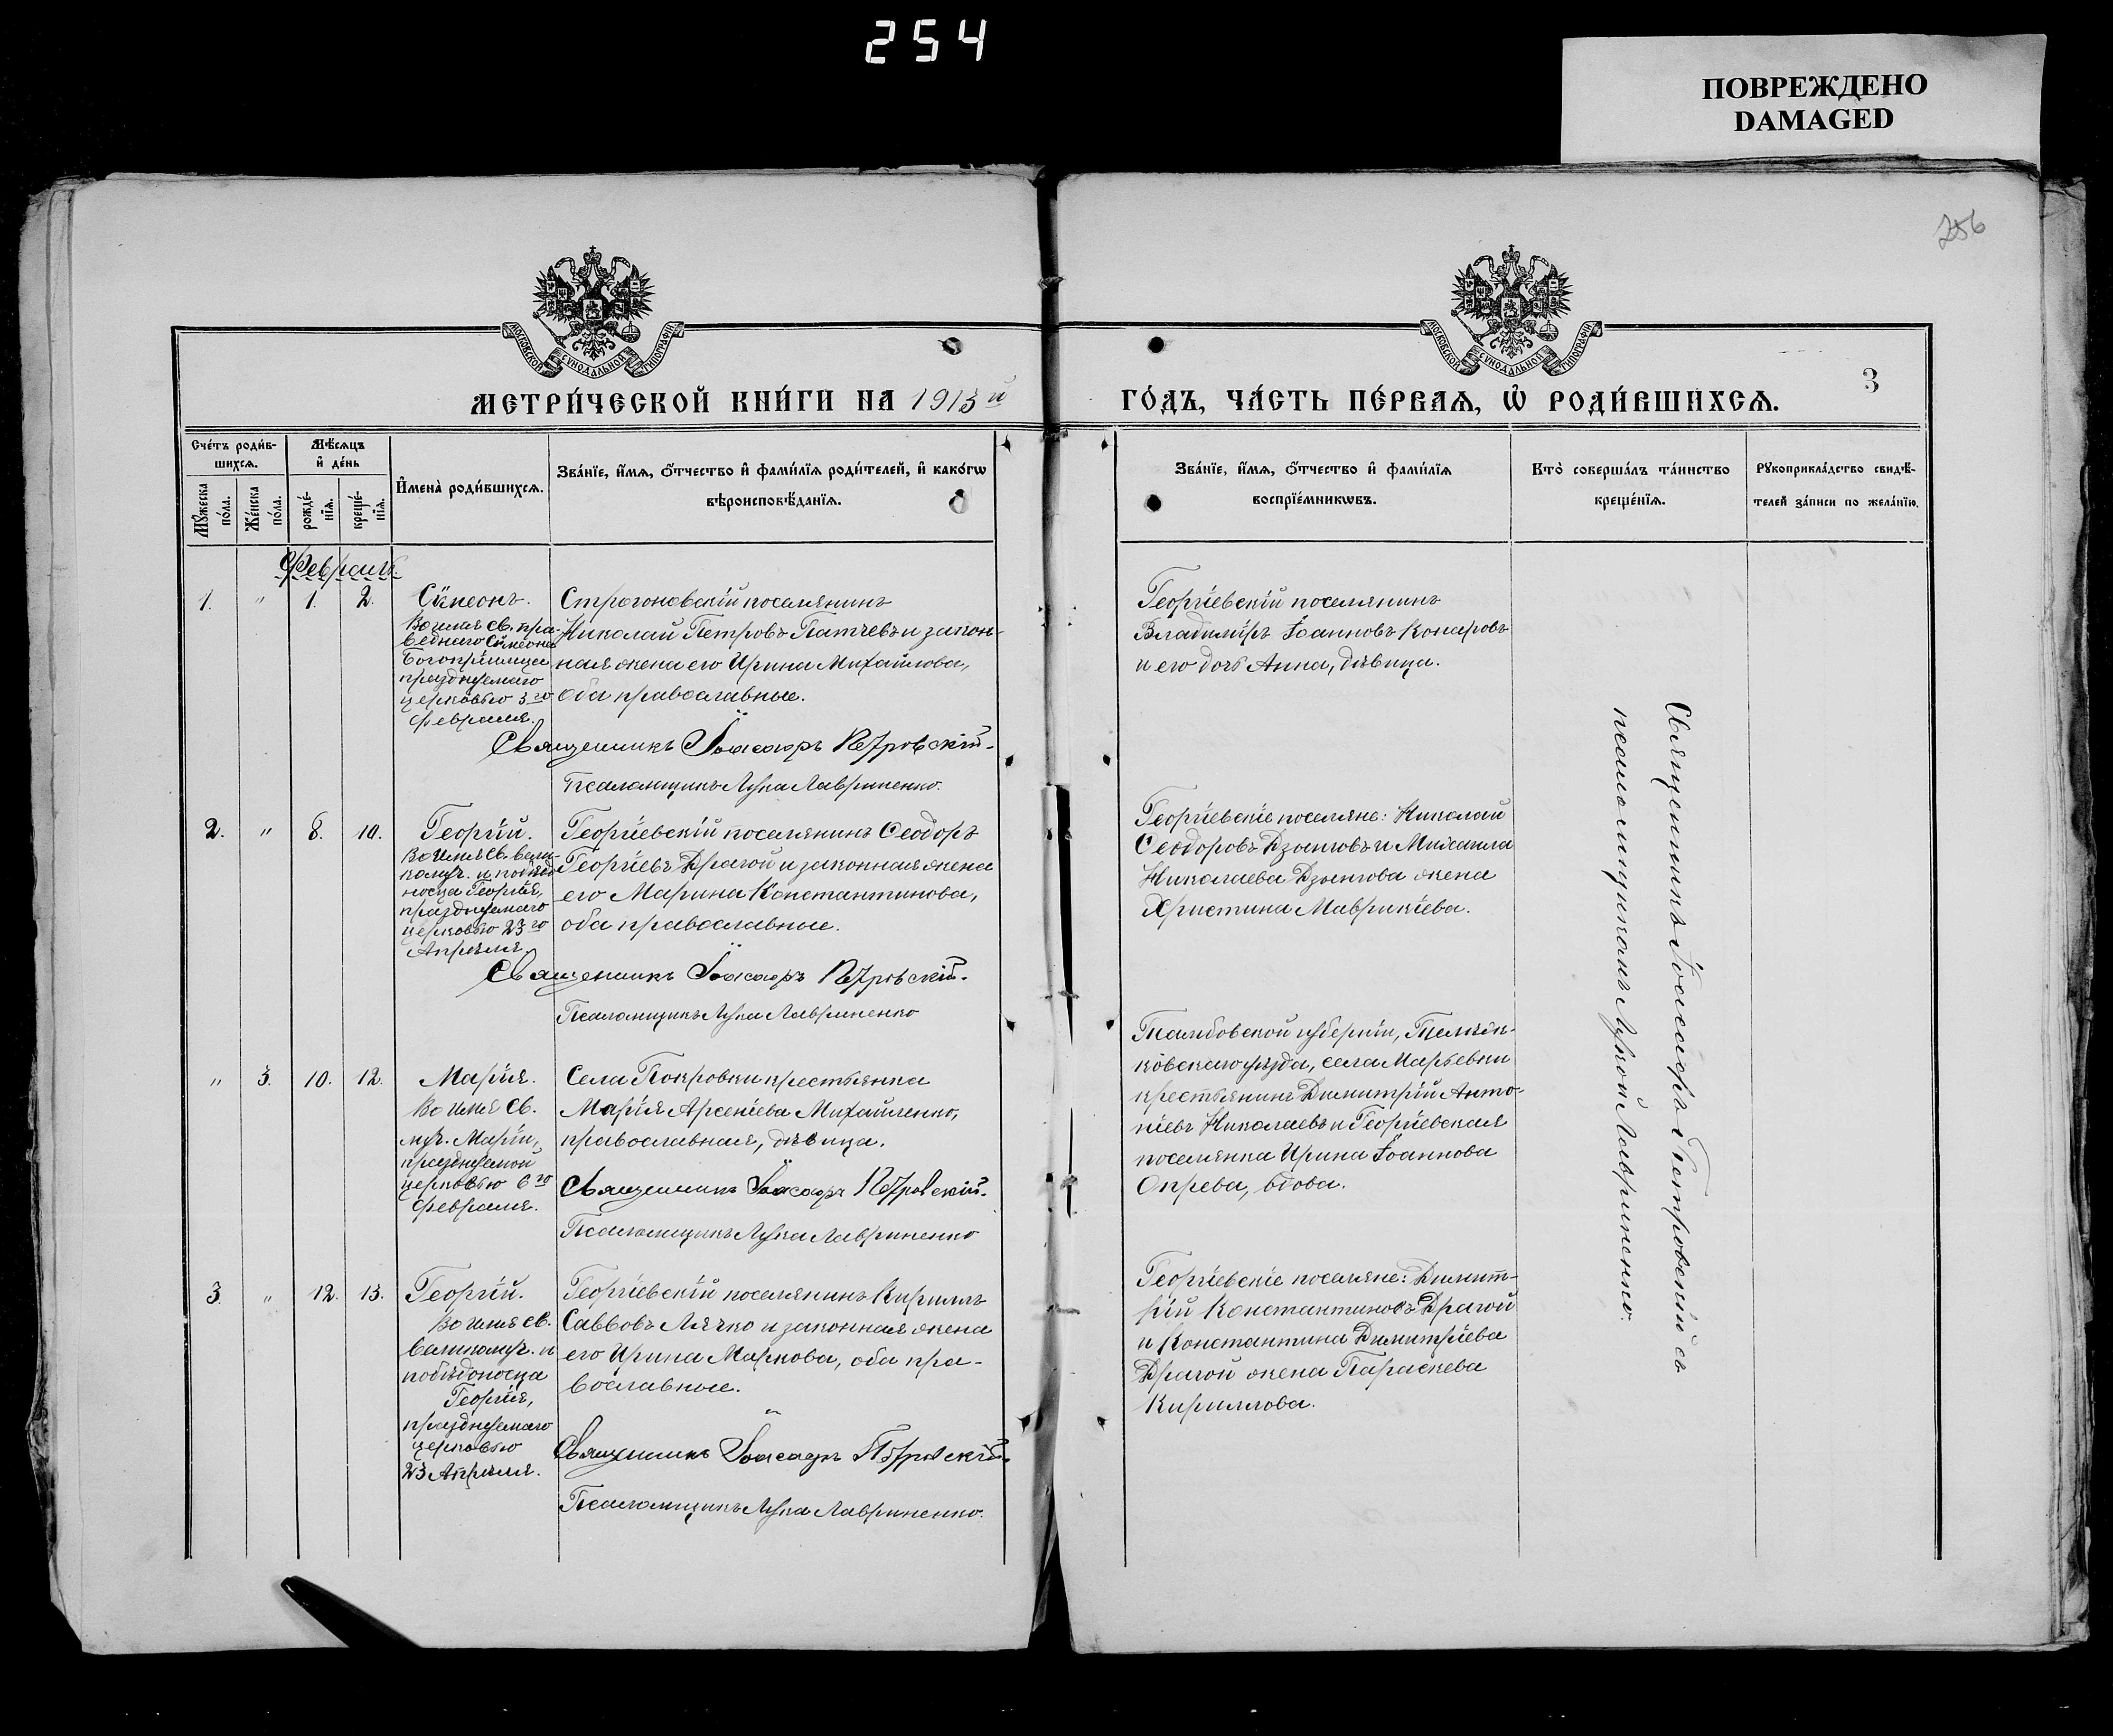 254
ПОВРЕЖДЕНО
DAMAGED
256
МОСКОВСКОЙ СѴНОДАЛЬНОЙ ТИПОГРАФІИ
МОСКОВСКОЙ СѴНОДАЛЬНОЙ ТИПОГРАФІИ
МЕТРИ́ЧЕСКОЙ КНИ́ГИ НА 1913й
ГО́ДЪ, ЧА́СТЬ ПЕ́РВАѦ, Ѡ РОДИ́ВШИХСѦ.
3
Сче́тъ роди́в-
шихсѧ.
Мѣ́сѧцъ
и҆ де́нь
Мꙋ́жеска
по́ла.
Же́нска
по́ла.
рожде́-
нїѧ.
креще́-
нїѧ.
И҆мена̀ роди́вшихсѧ.
Зва́нїе, и҆́мѧ, ѻ҆́тчество и҆ фами́лїѧ роди́телей, и҆ како́гѡ
вѣроисповѣ́данїѧ.
Зва́нїе, и҆́мѧ, ѻ҆́тчество и҆ фами́лїѧ
воспрїе́мникѡвъ.
Кто̀ соверша́лъ та́инство
креще́нїѧ.
Рꙋкоприкла́дство свидѣ́-
телей за́писи по жела́нїю.
Февраль.
1. " 1. 2.
Сѵмеонъ.
Во имя св. пра-
веднаго Сѵмеона
Богопріимца
празднуемаго
церковью 3го
февраля.
Строгоновскій поселянинъ
Николай Петровъ Патчевъ и закон-
ная жена его Ирина Михайлова,
оба православные.
Священникъ Іоасафъ Петровскій.
Псаломщикъ Лука Лавриненко.
Георгіевскій поселянинъ
Владиміръ Іоанновъ Комаровъ
и его дочь Анна, дѣвица.
2. " 8. 10.
Георгій.
Во имя св. вели-
комуч. и побѣдо
носца Георгія,
празднуемаго
церковью 23го
Апрѣля.
Георгіевскій поселянинъ Ѳеодоръ
Георгіевъ Драгой и законная жена
его Марина Константинова,
оба православные.
Священникъ Іоасафъ Петровскій.
Псаломщикъ Лука Лавриненко
Георгіевскіе поселяне: Николай
Ѳеодоровъ и Михаила
Николаева жена
Христина Маврикіева.
" 3. 10. 12.
Марія.
Во имя св.
муч. Маріи,
празднуемой
церковью 6го
февраля.
Села Покровки крестьянка
Марія Арсеніева Михайленко,
православная, дѣвица.
Священникъ Іоасафъ Петровскій.
Псаломщикъ Лука Лавриненко
Тамбовской губерніи, Темни-
ковскаго уѣзда, села Марьевки
крестьянинъ Димитрій Анто-
ніевъ Николаевъ и Георгіевская
поселянка Ирина Іоаннова
Опрева, вдова.
3. " 12. 13.
Георгій.
Во имя св.
великомуч. и
побѣдоносца
Георгія,
празднуемаго
церковью
23 Апрѣля.
Георгіевскій поселянинъ Кириллъ
Саввовъ Лячко и законная жена
его Ирина Маркова, оба пра-
вославные.
Священникъ Іоасафъ Петровскій.
Псаломщикъ Лука Лавриненко.
Георгіевскіе поселяне: Димит-
рій Константиновъ Драгой
и Константина Димитріева
Драгой жена Параскева
Кириллова.
Священникъ Іоасафъ Петровскій съ
псаломщикомъ Лукой Лавриненко.